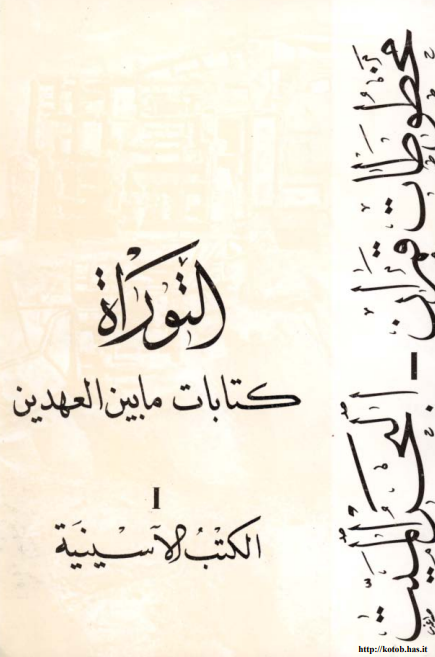 مخطوطات قمران - البحر الميت
التوراة
كتابات ما بين العهدين
I
الكتب الأسينية
http://kotob.has.it